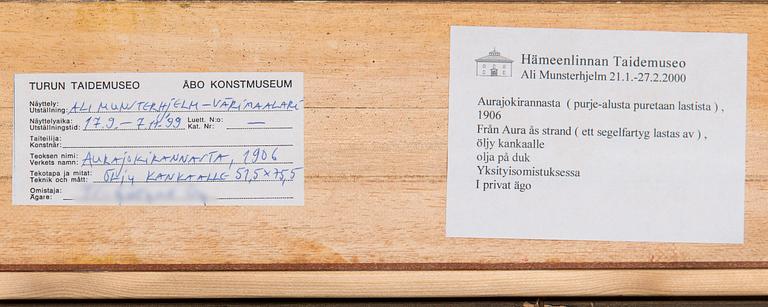 TURUN TAIDEMUSEO ÅBO KONSTMUSEUM
Näyttely:
Utställning: ALI MUNSTERHJELM – VÄRIMAALARI
Näyttelyaika: Luett. N:o:
Utställningstid: 17.9.– 7.11.99 Kat. Nr: —
Taiteilija:
Konstnär:
Teoksen nimi:
Verkets namn: AURAJOKIRANNASTA, 1906
Tekotapa ja mitat:
Teknik och mått: ÖLJY KANKAALLE 57,5 x 75,5
Omistaja:
Ägare:
Hämeenlinnan Taidemuseo
Ali Munsterhjelm 21.1.-27.2.2000
Aurajokirannasta ( purje-alusta puretaan lastista ) ,
1906
Från Aura ås strand ( ett segelfartyg lastas av ) ,
öljy kankaalle
olja på duk
Yksityisomistuksessa
I privat ägo